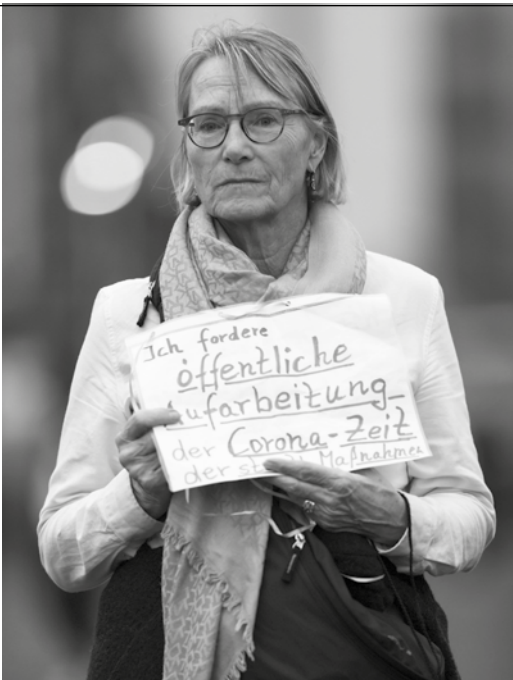 Ich fordere
öffentliche
ufarbeitung
der Corona-Zeit
der Maßnahmen